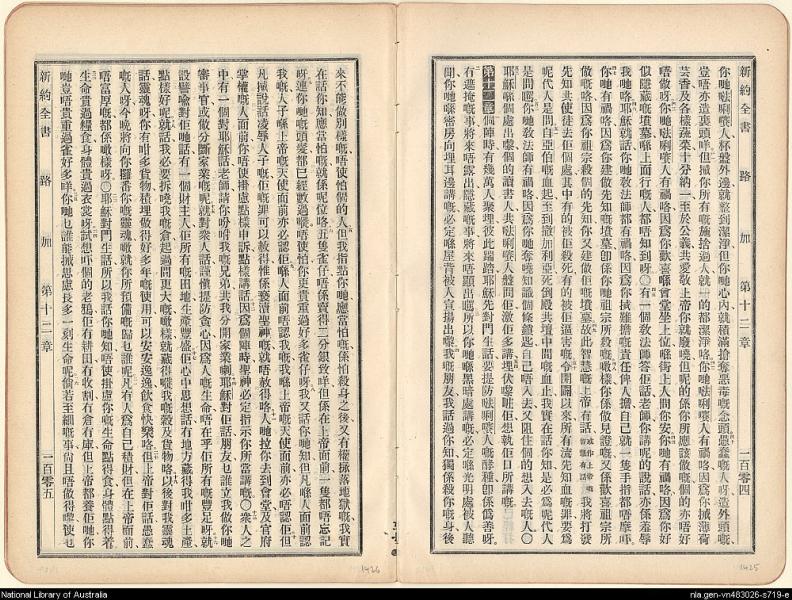 新約全書 路加 第十二章 一百零四
人杯盤外邊就整到潔淨但你哋心內就積滿搶奪惡毒嘅念頭愚蠢嘅人呀造外頭嘅
豈唔亦造裏頭咩但將你所有嘅施捨過人就一的都潔淨咯
芸香及各樣蔬菜十分納一至於公義共愛敬上帝你就廢曉但呢的係你所應該做嘅個的亦唔好
唔做呀
似隱藏嘅墳墓喺上面行嘅人都唔知到呀〇有一個教法師答佢話老師你講呢的說話亦係羞辱
我哋咯耶穌就話你哋教法師都有禍咯因爲你將難擔嘅責任俾人擔自己就一隻手指都唔摩吓
你哋有禍咯因爲你建做先知嘅墳墓卽係你哋祖宗所殺嘅噉樣你係做見證嘅又係歡喜祖宗所
做嘅咯因爲你祖宗殺個的先知你又建做佢嘅墳墓故此智慧嘅上帝有話我將打發
先知共使徒去佢個處其中有的被佢殺死有的被佢逼害嘅令開闢以來所有流先知血嘅罪要爲
呢代人是問自亞伯嘅血起至到撒加利亞死倒殿共壇中間嘅血止我實在話你知是必爲呢代人
是問嘅你哋教法師有禍咯因爲你哋奪曉知識個條鎖匙自己唔入去又阻住個的想入去嘅人〇
耶穌喺個處出嚟個的讀書人共
第十二章 個陣時有幾萬人聚埋彼此踹踏耶穌先對門生話要提防
有遮掩嘅事將來唔露出隱藏嘅事將來唔顯出嘅所以你哋喺黑暗處講嘅必定喺光明處被人聽
聞你哋喺密房向埋耳邊講嘅必定喺屋背被人宣揚出嚟我嘅朋友我話過你知獨係殺你嘅身後
1425
來不能做別樣嘅唔使怕個的人但我指點你哋應當怕嘅係怕殺身之後又有權掭落地獄嘅我實
在話你知應當怕嘅就係呢位咯五隻雀仔唔係賣得二分銀致咩但係在上帝面前一隻都唔忘記
呀連你哋嘅頭髮都已經數過嘅唔使怕你更貴重過好多雀仔呀我又話你哋知但凡喺人面前認
我嘅人子喺上帝嘅天使面前亦必認佢喺人面前唔認我嘅我喺上帝嘅天使面前亦必唔認佢但
凡掭說話凌辱人子嘅佢嘅罪可以赦得惟係褻瀆聖神嘅就唔赦得咯人哋拉你去到會堂及官府
掌權嘅人面前你唔使掛慮點樣申訴點樣講話因爲個陣時聖神必定指示你所當講嘅〇衆人之
中有一個對耶穌話老師請你吩咐我嘅兄弟共我分開家業喇耶穌對佢話朋友乜誰立我做你哋
審事官或做分斷家業嘅呢就對衆人話謹愼提防貪心因爲人嘅生命唔在乎佢所有嘅豐足呀就
設譬喻對佢哋話有一個財主人佢所有嘅田地生產豐盛佢心中思想話有地方藏得我咁多土產
點樣好呢就話我必要拆曉我嘅倉起過間更大嘅噉樣就藏得曉我嘅穀及貨物咯以後對我靈魂
話靈魂呀你有咁多貨物積埋做得好多年嘅使用可以安安逸逸飲食快樂咯但上帝對佢話愚蠢
嘅人呀今晚將向你攞番你嘅靈魂噉就你所預備嘅歸乜誰呢凡有人爲自己積財但在上帝面前
唔富厚嘅都係噉樣呀〇耶穌對門生話所以我話你哋知唔使掛慮你嘅生命點得食身體點得着
生命貴過糧食身體貴過衣裳呀試想吓個的老鴉佢有耕田有收割有倉有庫但上帝都養佢哋你
哋豈唔貴重過雀好多咩你哋乜誰能掭思慮長多一刻生命呢倘若至細嘅事尙且唔做得嚟使乜
新約全書 路加 第十二章 一百零五
1426
National Library of Australia
nla.gen-vn483026-s719-e